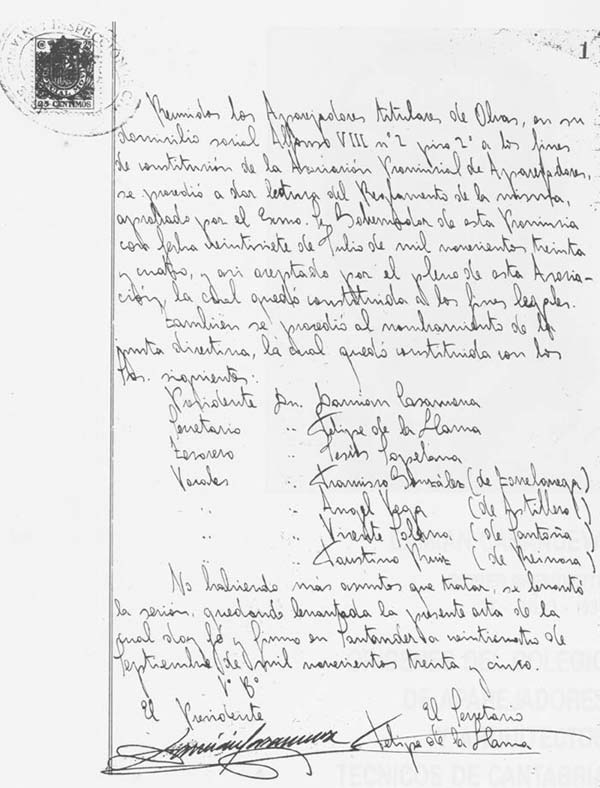 1
25 CENTIMOS
Reunidos los Aparejadores titulares de Obras, en su
domicilio social Alfonso VIII nº 2 piso 2º a los fines
de constitución de la Asociación Provincial de Aparejadores,
se procedió a dar lectura del Reglamento de la misma,
aprobado por el Exmo. Sr. Gobernador de esta Provincia
con fecha veintisiete de Julio de mil novecientos treinta
y cuatro, y asi aceptado por el pleno de esta Asocia-
ción, la cual quedó constituida a los fines legales.
También se procedió al nombramiento de la
junta directiva, la cual quedó constituida con los
Srs. siguientes:
Presidente Dn. Damian Casanueva
Secretario " Felipe de la Llama
Tesorero " Jesús
Vocales " Francisco González (de Torrelavega)
" " Angel Vega (de Astillero)
" " Vicente Solana (de Santoña)
" " Faustino Ruiz (de Reinosa)
No habiendo más asuntos que tratar, se levantó
la sesión, quedando levantada la presente acta de la
cual doy fé y firmo en Santander a veinticuatro de
Septiembre de mil novecientos treinta y cinco.
Vº Bº
El Presidente El Secretario
Damián Casanueva Felipe de la Llama
COLEGIO
DE APAREJADORES
TECNICOS DE CANTABRIA